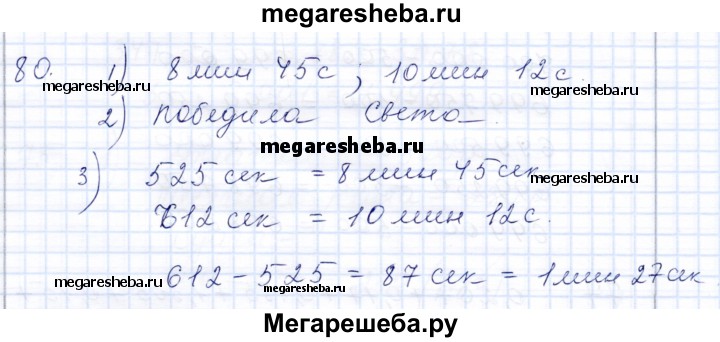 megaresheba.ru
80. 1) 8 мин 45 с; 10 мин 12 с.
megaresheba.ru megaresheba.ru
2) победила Света.
megaresheba.ru
3) 525 сек = 8 мин 45 сек
megaresheba.ru megaresheba.ru
612 сек = 10 мин 12 с.
612 - 525 = 87 сек = 1 мин 27 сек
megaresheba.ru megaresheba.ru megaresheba.ru
Мегарешеба.ру